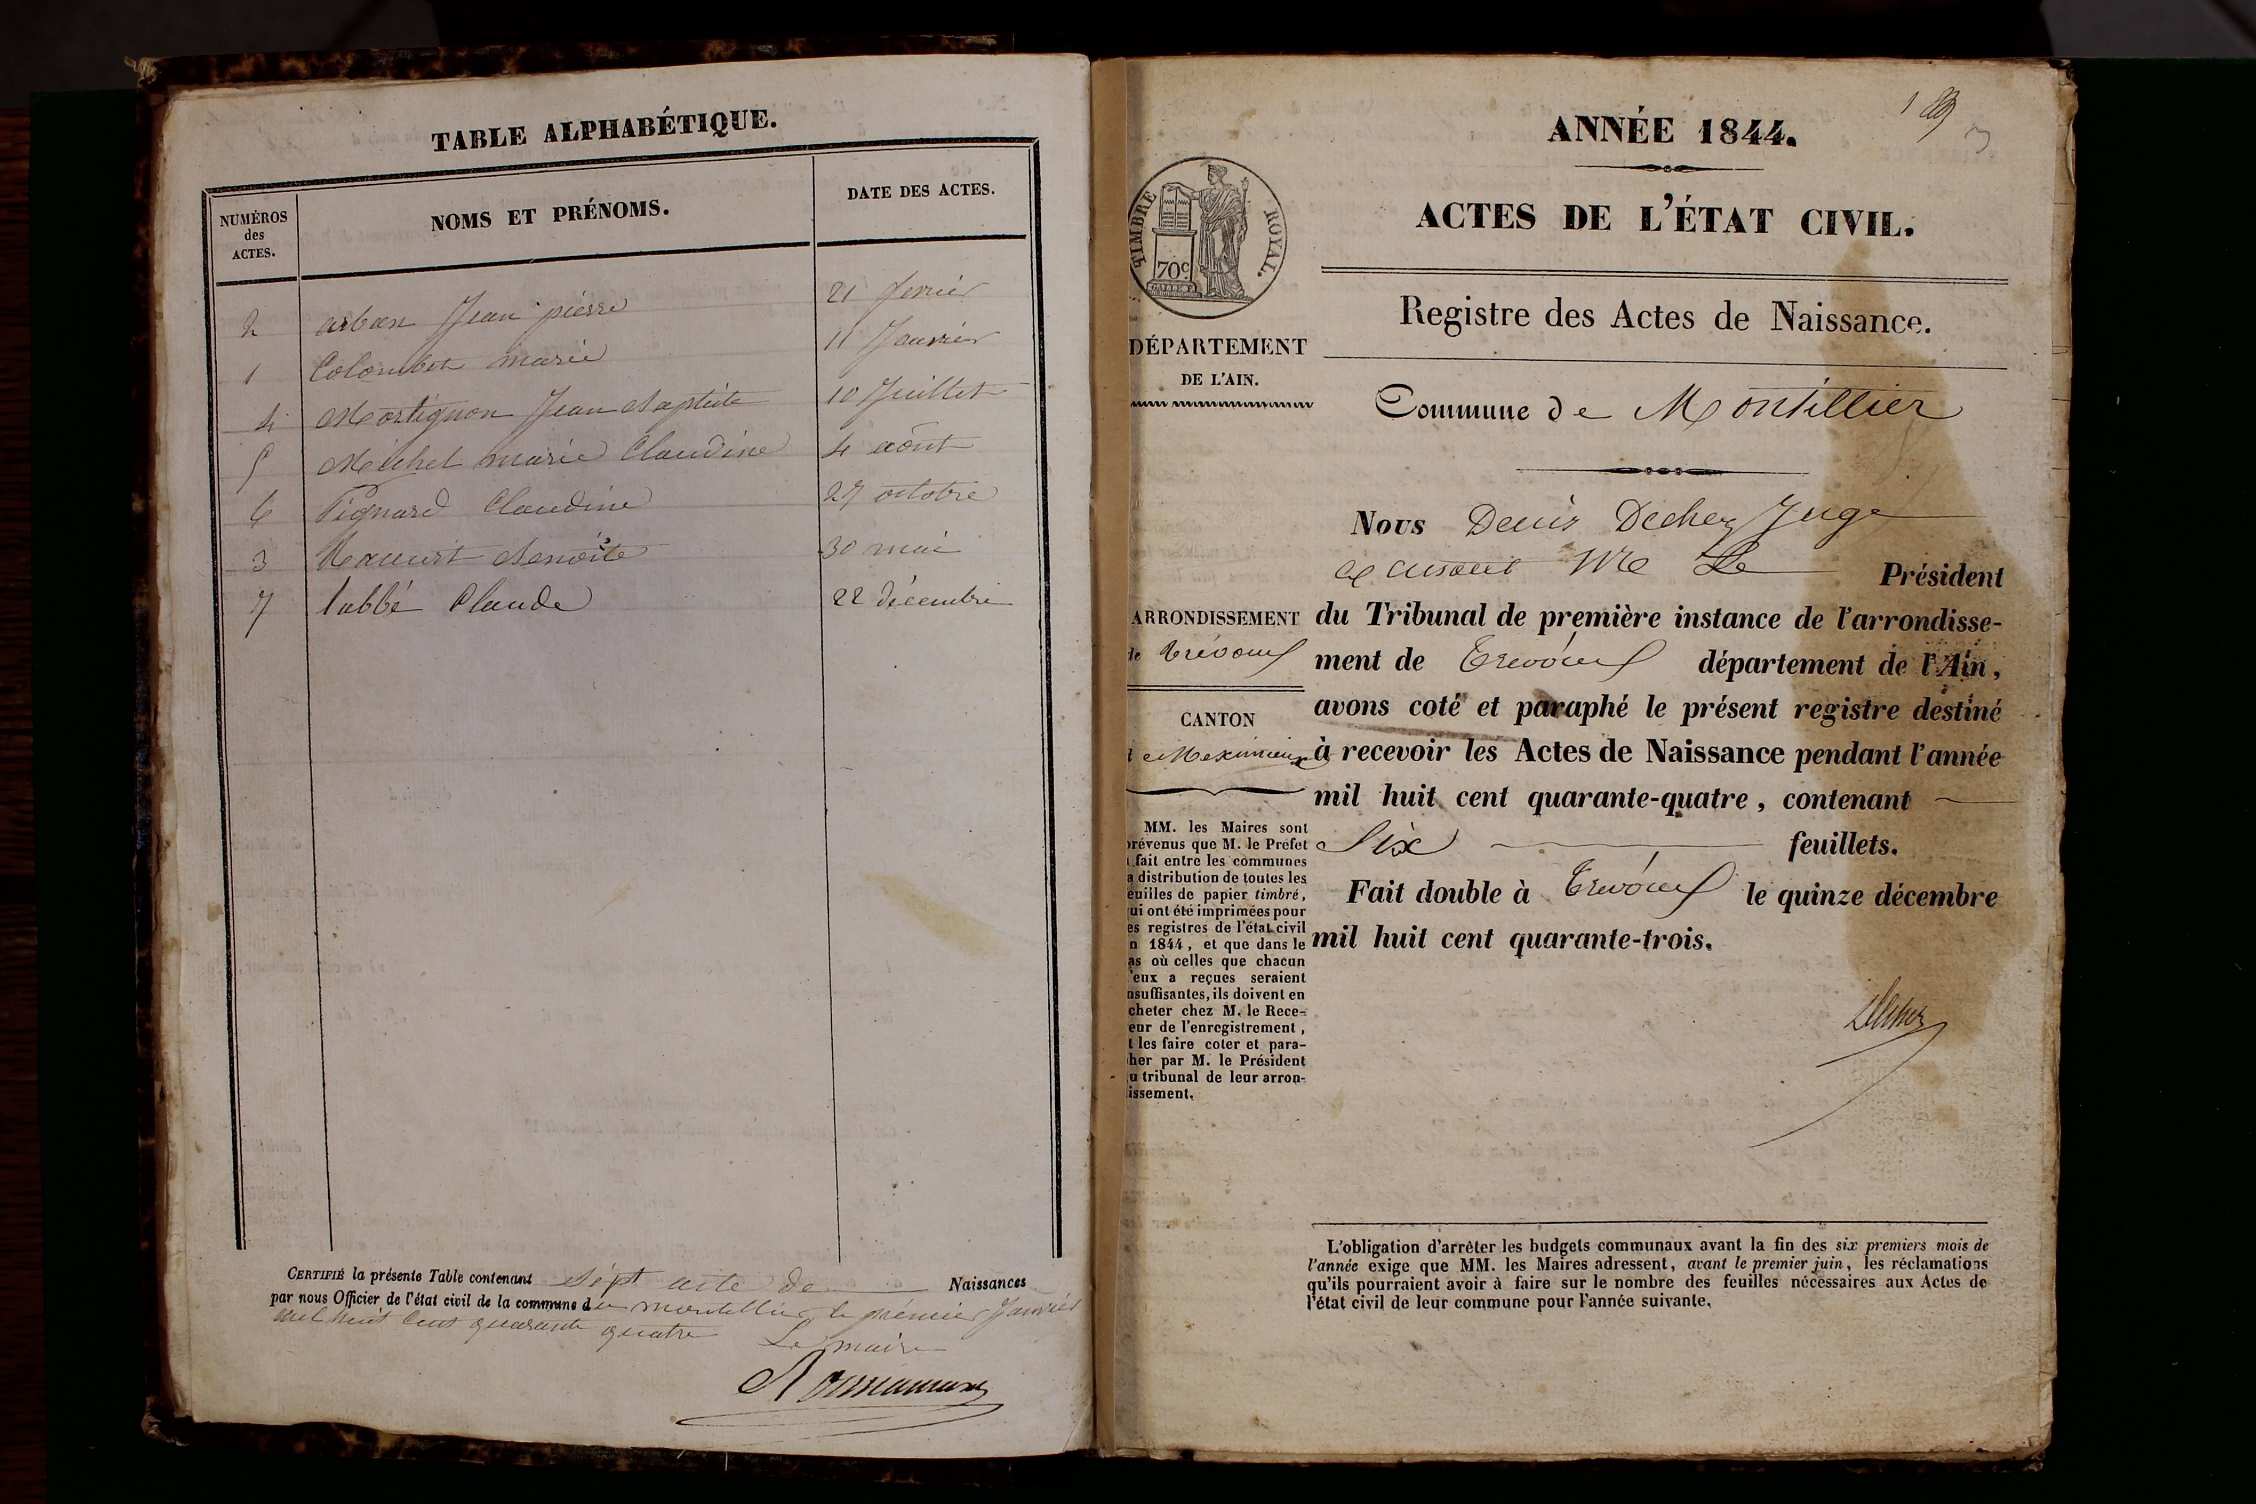 TABLE ALPHABÉTIQUE.
NUMÉROS des ACTES.
NOMS ET PRÉNOMS.
DATE DES ACTES.
2 arban Jean pierre 21 fevrier
1 Colombet marie 11 Janvier
4 Martignon Jean Baptiste 10 Juillet
5 Michel marie Claudine 4 août
6 Pignard Claudine 27 octobre
3 Benoite 30 mai
7 Claude 22 décembre
CERTIFIÉ la présente Table contenant sept acte de Naissances
par nous Officier de l'état civil de la commune de montellier le premier Janvier
mil huit Cent quarante quatre Le maire
1
3
ANNÉE 1844.
ACTES DE L'ÉTAT CIVIL.
TIMBRE ROYAL.
70c
Registre des Actes de Naissance.
DÉPARTEMENT
DE L'AIN.
Commune de Montellier
Nous Denis Decher Juge
Mr Le Président
du Tribunal de première instance de l'arrondisse-
ment de Trévoux département de l'Ain,
avons coté et paraphé le présent registre destiné
à recevoir les Actes de Naissance pendant l'année
mil huit cent quarante-quatre, contenant
Six feuillets.
Fait double à Trévoux le quinze décembre
mil huit cent quarante-trois.
Decher
ARRONDISSEMENT
de Trévoux
CANTON
Meximieux
MM. les Maires sont
prévenus que M. le Préfet
a fait entre les communes
a distribution de toutes les
euilles de papier timbré,
ui ont été imprimées pour
es registres de l'état civil
n 1844, et que dans le
as où celles que chacun
'eux a reçues seraient
nsuffisantes, ils doivent en
cheter chez M. le Rece-
eur de l'enregistrement,
t les faire coter et para-
her par M. le Président
u tribunal de leur arron-
issement.
L'obligation d'arrêter les budgets communaux avant la fin des six premiers mois de
l'année exige que MM. les Maires adressent, avant le premier juin, les réclamations
qu'ils pourraient avoir à faire sur le nombre des feuilles nécessaires aux Actes de
l'état civil de leur commune pour l'année suivante.